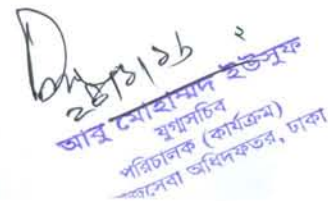 ২
২৪/১/১৬
আবু মোহাম্মদ ইউসুফ
যুগ্মসচিব
পরিচালক (কার্যক্রম)
অধিদফতর, ঢাকা